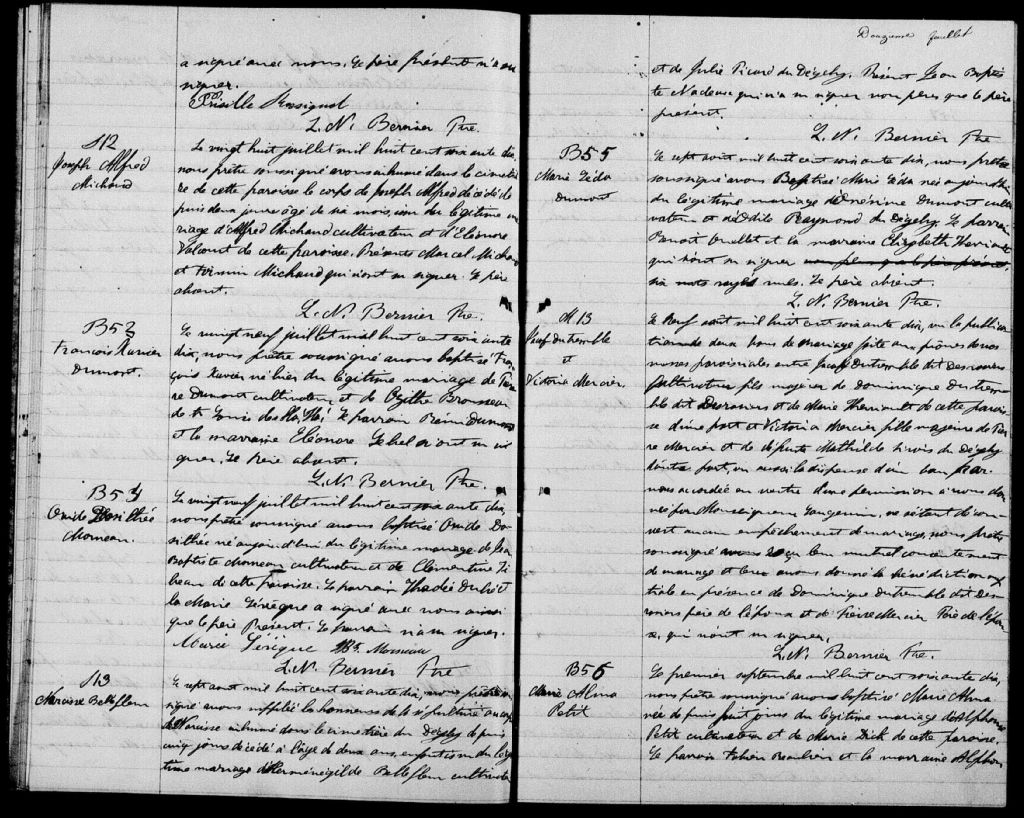 a signé avec nous. Le père présent n'a su
signer.
Priscille Rossignol
L. N. Bernier Ptre.
S12
Joseph Alfred
Michaud
Le vingt huit juillet mil huit cent soixante dix,
nous prêtre soussigné avons inhumé dans le cimetiè
re de cette paroisse le corps de Joseph Alfred décédé de
puis deux jours âgé de six mois, issu du légitime ma
riage d'Alfred Michaud cultivateur et d'Eléonore
Valcourt de cette paroisse. Présents Marcel Michaud
et Firmin Michaud qui n'ont su signer. Le père
absent.
L. N. Bernier Ptre.
B53
François Xavier
Dumont.
Le vingt neuf juillet mil huit cent soixante
dix, nous prêtre soussigné avons baptisé Fran
çois Xavier né hier du légitime mariage de Pier
re Dumont cultivateur et de Ozithe Brousseau
de St Louis du Ha! Ha! Le parrain Rémi Dumont
et la marraine Eléonore Lebel n'ont su si
gner. Le père absent.
L. N. Bernier Ptre.
B54
Ovide Dosithée
Morneau.
Le vingt neuf juillet mil huit cent soixante dix,
nous prêtre soussigné avons baptisé Ovide Do
sithée né aujourd'hui du légitime mariage de Jean
Baptiste Morneau cultivateur et de Clémentine Ti
beau de cette paroisse. Le parrain Thadée Dubé et
la Marie Lévèque a signé avec nous ainsi
que le père Présent. Le parrain n'a su signer.
Marie Lévèque Bte Morneau
L. N. Bernier Ptre
S13
Narcisse Bellefleur
Le sept aout mil huit cent soixante dix, nous prêtre sous
signé avons suppléé les honneurs de la sépulture au corps
de Narcisse inhumé dans le cimetière du Dégely depuis
cinq jours décédé à l'âge de deux ans, enfant issu du légi
time mariage d'Herménégilde Bellefleur cultivateur
Douzième feuillet
et de Julie Picard du Dégely. Présent Jean Baptis
te Nadeau qui n'a su signer non plus que le père
présent.
L. N. Bernier Ptre
B55
Marie Léda
Dumont
Le sept aout mil huit cent soixante dix, nous prêtre
soussigné avons Baptisé Marie Léda née aujourd'hui
du légitime mariage d'Onésime Dumont culti
vateur et d'Edith Raymond du Dégely. Le parrain
Benoit Ouellet et la marraine Elizabeth Therriault
qui n'ont su signer non plus que le père présent,
six mots rayés nuls. Le père absent.
L. N. Bernier Ptre.
M13
Jacq. Dutremble
et
Victoria Mercier.
Le neuf août mil huit cent soixante dix, vu la publica
tion de deux bans de mariage faite aux prônes de nos
messes paroissiales entre Jacq. Dutremble dit Desrosiers
cultivateur fils majeur de Dominique Dutrem
ble dit Desrosiers et de Marie Therriault de cette parois
se d'une part et Victoria Mercier fille mageure de Pier
re Mercier et de défunte Mathilde Sirois du Dégely
d'autre part, vu aussi la dispense d'un ban par
nous accordée en vertu d'une permission à nous don
née par Monseigneur Langevin, ne s'étant découv
vert aucun empêchement de mariage, nous prêtre
soussigné avons reçu leur mutuel consentement
de mariage et leur avons donné la bénédiction nup
tiale en présence de Dominique Dutremble dit Des
rosiers père de l'époux et de Pierre Mercier Père de l'épou
se, qui n'ont su signer.
L. N. Bernier Ptre.
B56
Marie Alma
Petit
Le premier septembre mil huit cent soixante dix,
nous prêtre soussigné avons baptisé Marie Alma
née depuis huit jours du légitime mariage d'Alphonse
Petit cultivateur et de Marie Dick de cette paroisse.
Le parrain Fabien Beaulieu et la marraine Alphon